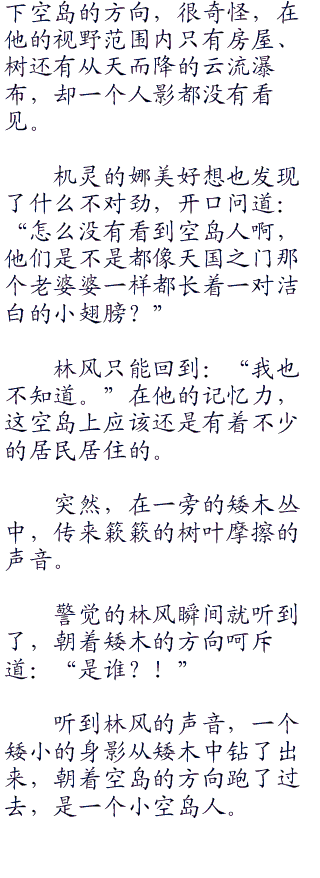 下空岛的方向，很奇怪，在
他的视野范围内只有房屋、
树还有从天而降的云流瀑
布，却一个人影都没有看
见。
机灵的娜美好想也发现
了什么不对劲，开口问道：
“怎么没有看到空岛人啊，
他们是不是都像天国之门那
个老婆婆一样都长着一对洁
白的小翅膀？”
林风只能回到：“我也
不知道。”在他的记忆力，
这空岛上应该还是有着不少
的居民居住的。
突然，在一旁的矮木丛
中，传来簌簌的树叶摩擦的
声音。
警觉的林风瞬间就听到
了，朝着矮木的方向呵斥
道：“是谁？！”
听到林风的声音，一个
矮小的身影从矮木中钻了出
来，朝着空岛的方向跑了过
去，是一个小空岛人。